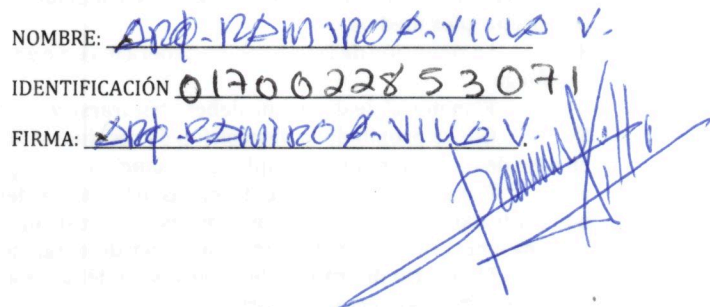 NOMBRE: ARQ. RAMIRO A. VILLA V.
IDENTIFICACIÓN 0170022853071
FIRMA: ARQ. RAMIRO A. VILLA V.
Ramiro Villa